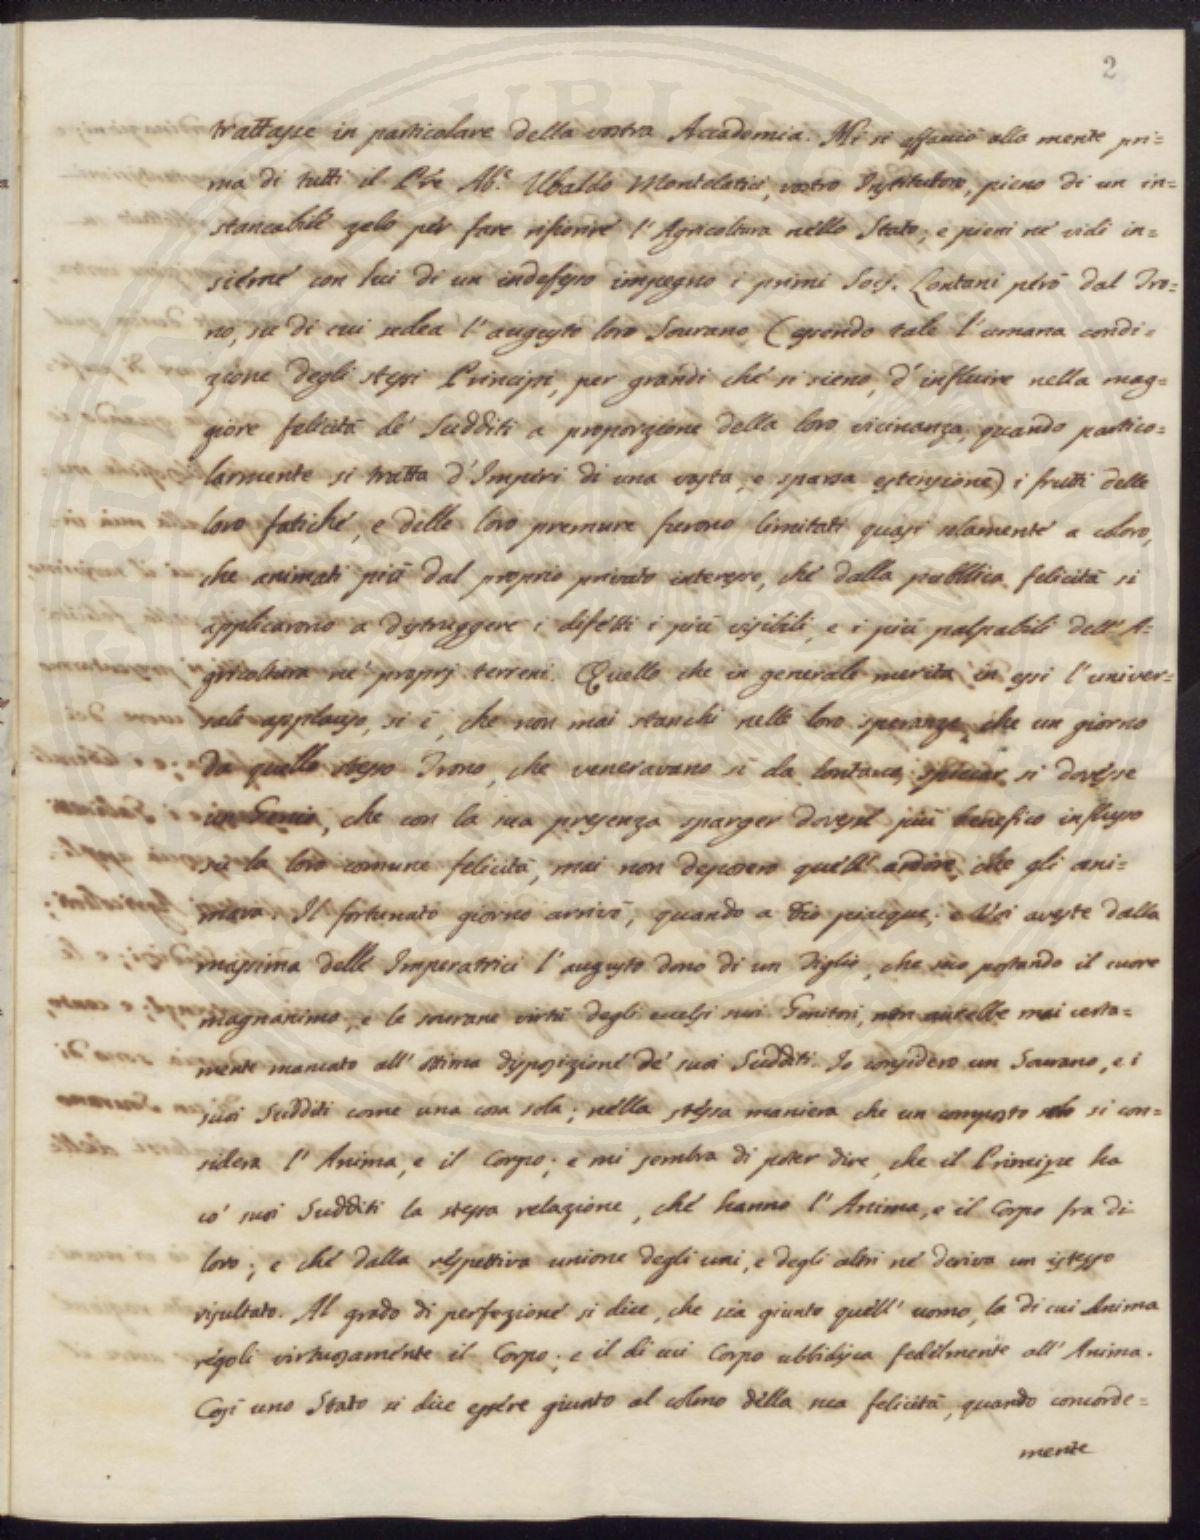 2
trattasse in particolare della vostra Accademia. Mi si affacciò alla mente pri=
ma di tutti il P.re Ab.e Ubaldo Montelatici, vostro Institutore, pieno di un in=
stancabile zelo per fare rifiorire l'Agricoltura nello Stato; e pieni ne vidi in=
sieme con Lui di un indefesso impegno i primi Socj. Lontani però dal Tro=
no, su di cui sedea l'augusto loro Sovrano (essendo tale l'umana condi=
zione degli stessi Principi, per grandi che si sieno, d'influire nella mag=
giore felicità de' Sudditi a proporzione della loro vicinanza, quando partico=
larmente si tratta d'Imperi di una vasta, e sparsa estensione) i frutti delle
loro fatiche, e delle loro premure furono limitati quasi solamente a coloro,
che animati più dal proprio privato interesse, che dalla pubblica felicità si
applicarono a distruggere i difetti i più visibili, e i più palpabili dell'A=
gricoltura ne' proprj terreni. Quello che in generale merita in essi l'univer=
sale applauso, si è, che non mai stanchi nelle loro speranze, che un giorno
da quello stesso Trono, che veneravano sì da lontano, spiccar si dovesse
un Genio, che con la sua presenza sparger dovesse più benefico influsso
su la loro comune felicità, mai non deposero quell'ardore, che gli ani=
mava. Il fortunato giorno arrivò, quando a Dio piacque; e Voi aveste dalla
massima delle Imperatrici l'augusto dono di un Figlio, che seco portando il cuore
magnanimo, e le sovrane virtù degli eccelsi suoi Genitori, non avrebbe mai certa=
mente mancato all'ottima disposizione de' suoi Sudditi. Io considero un Sovrano, e i
suoi Sudditi come una cosa sola; nella stessa maniera che un composto solo si con=
sidera l'Anima, e il Corpo; e mi sembra di poter dire, che il Principe ha
co' suoi Sudditi la stessa relazione, che hanno l'Anima, e il Corpo fra di
loro; e che dalla respettiva unione degli uni, e degli altri ne deriva un istesso
risultato. Al grado di perfezione si dice, che sia giunto quell'uomo, la di cui Anima
regoli virtuosamente il Corpo; e il di cui Corpo ubbidisca fedelmente all'Anima.
Così uno Stato si dice essere giunto al colmo della sua felicità, quando concorde=
mente